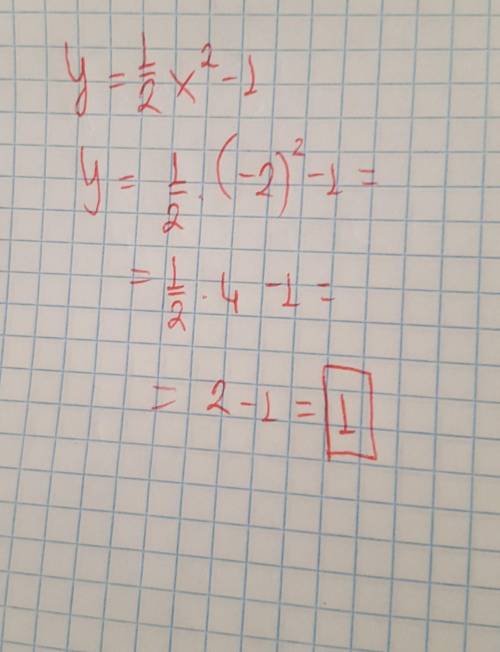 y = 1/2 x² - 1
y = 1/2 · (-2)² - 1 =
= 1/2 · 4 - 1 =
= 2 - 1 = 1